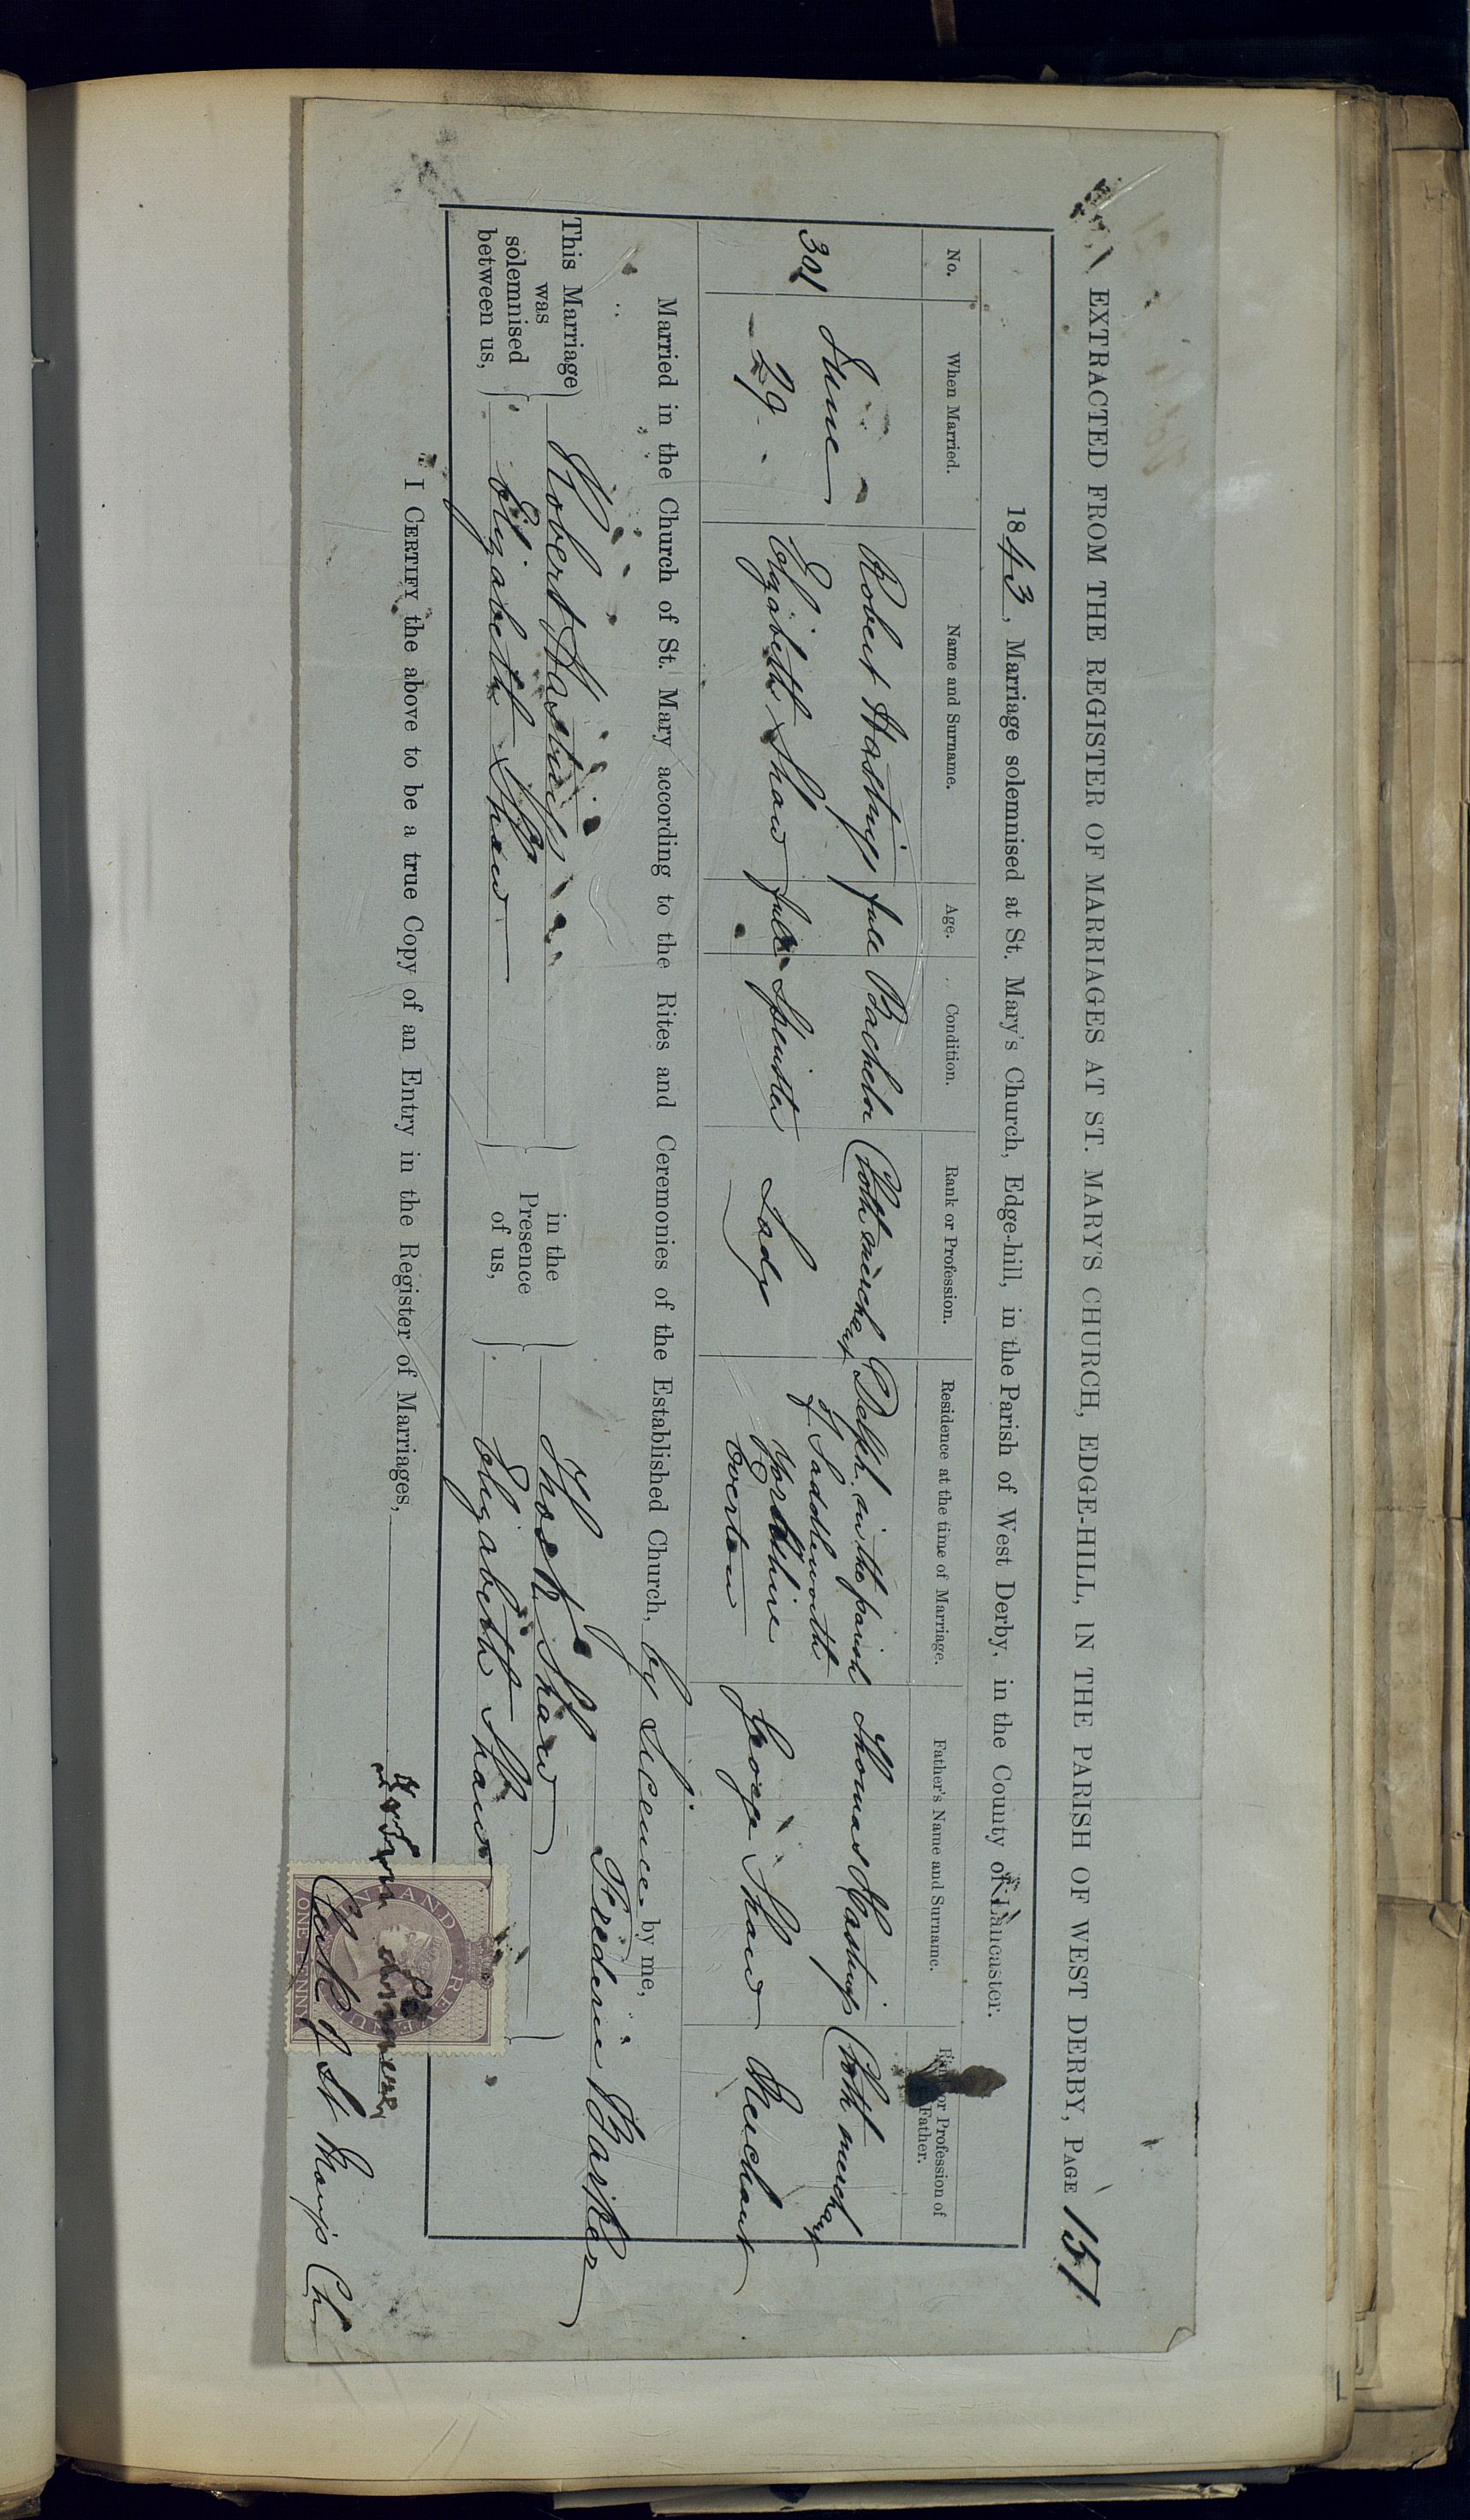 EXTRACTED FROM THE REGISTER OF MARRIAGES AT ST. MARY'S CHURCH, EDGE-HILL, IN THE PARISH OF WEST DERBY, PAGE 151
1843, Marriage solemnised at St. Mary's Church, Edge-hill, in the Parish of West Derby, in the County of Lancaster.
No. When Married. Name and Surname. Age. Condition. Rank or Profession. Residence at the time of Marriage. Father's Name and Surname. Rank or Profession of Father.
301 June 29 Robert Hastings full Bachelor Cloth merchant Delph in the parish of Saddleworth Yorkshire Thomas Hastings Cloth merchant
Elizabeth Shaw full Spinster Lady Everton George Shaw Merchant
Married in the Church of St. Mary according to the Rites and Ceremonies of the Established Church, by Licence by me,
Frederic Barker
This Marriage was solemnised between us,
Robert Hastings
Elizabeth Shaw
in the Presence of us,
Thos. Shaw
Elizabeth Shaw
I CERTIFY the above to be a true Copy of an Entry in the Register of Marriages,
Clerk of St Mary's Ch
INLAND REVENUE
ONE PENNY